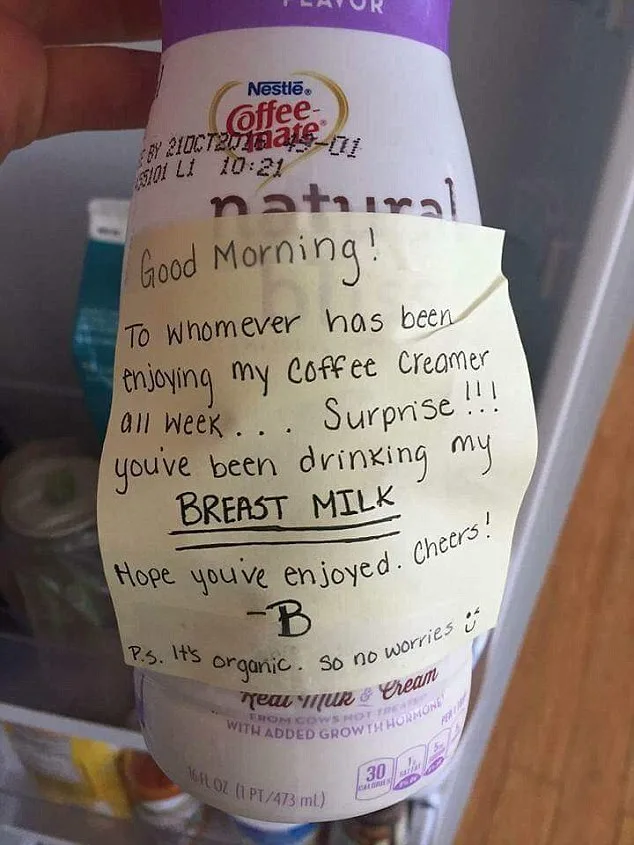 FLAVOR
Nestlé®
Coffee-
mate®
BY 21OCT2016 49-01
55101 L1 10:21
natural
Good Morning!
To whomever has been
enjoying my coffee creamer
all week... Surprise!!!
you've been drinking my
BREAST MILK
Hope you've enjoyed. Cheers!
-B
P.s. It's organic. So no worries
Real Milk & Cream
FROM COWS NOT TREATED
WITH ADDED GROWTH HORMONE
16 FL OZ (1 PT/473 mL)
30
CALORIES